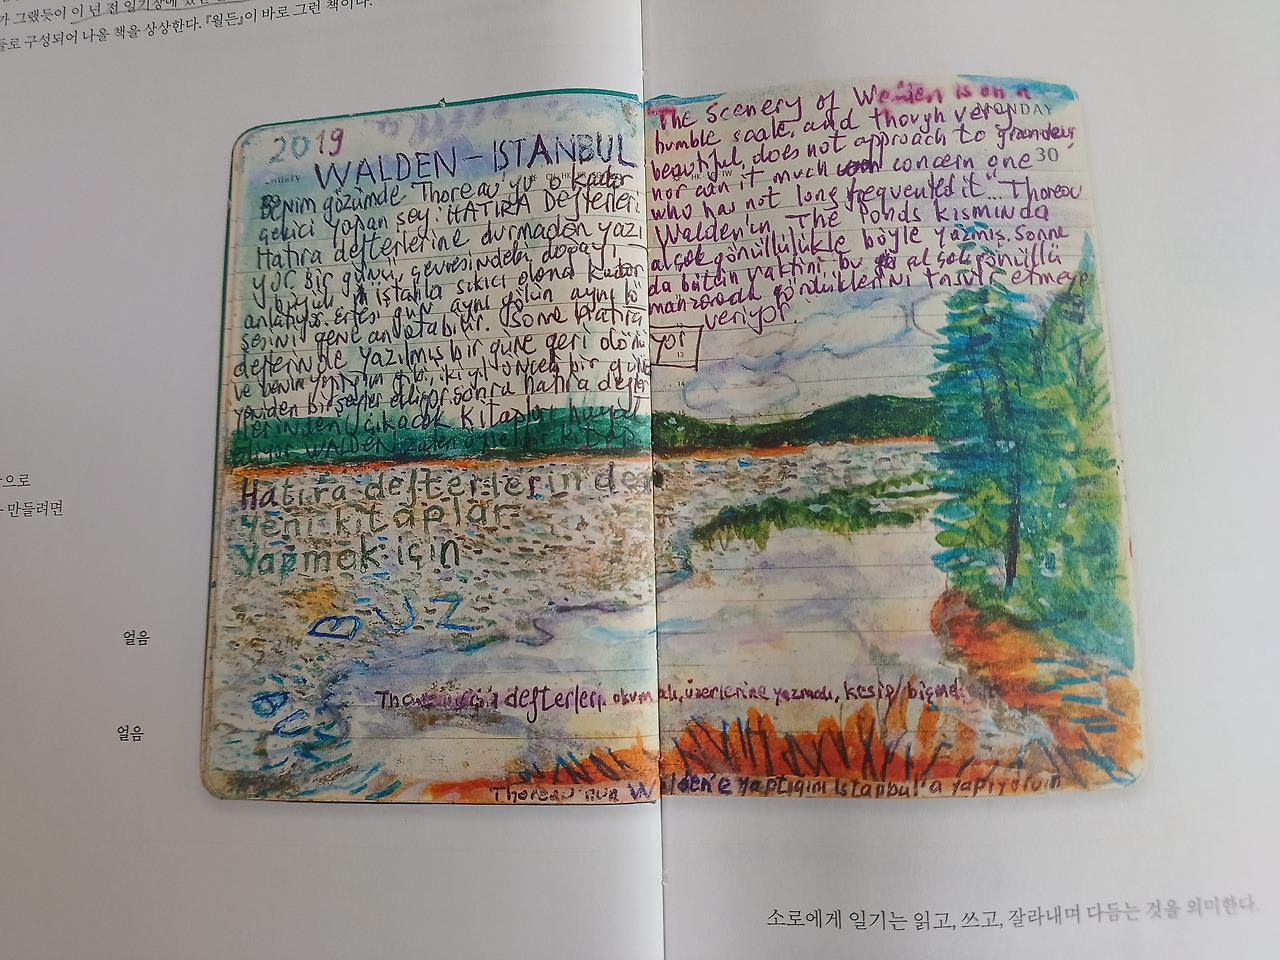 가 그랬듯이 이 년 전 일기장에
들로 구성되어 나올 책을 상상한다. 『월든』이 바로 그런 책이다.
2019
WALDEN – ISTANBUL
Benim gözümde Thoreau'yu o kadar
çekici yapan şey: HATIRA DEFTERLERİ
Hatıra defterlerine durmadan yazı
yor. Bir günü, çevresindeki doğayı
büyük iştahla sıkıcı olana kadar
anlatıyor. Ertesi gün aynı gölün aynı kö
şesini gene anlatabilir. Sonra hatıra
defterinde yazılmış bir güne geri dönü
yor
ve benim yaptığım gibi iki yıl önceki bir güne
yeniden bir şeyler ekliyor. sonra hatıra defter
lerinden çıkacak kitapları hayal
ediyor. WALDEN zaten öyle bir kitap
Hatıra defterlerinden
yeni kitaplar
yapmak için
BUZ
BUZ
The scenery of Walden is on a
MONDAY
humble scale, and though very
beautiful, does not approach to grandeur,
30
nor can it much concern one
who has not long frequented it... Thoreau
Walden'in The Ponds kısmında
alçak gönüllülükle böyle yazmış. Sonra
da bütün vaktini bu alçakgönüllü
manzarada gördüklerini tasvir etmeye
veriyor.
13
14
Thoreau için defterleri okumalı, üzerlerine yazmalı, kesip/biçmeli
Thoreau'nun Walden'e yaptığını İstanbul'a yapıyorum
으로
만들려면
얼음
얼음
소로에게 일기는 읽고, 쓰고, 잘라내며 다듬는 것을 의미한다.